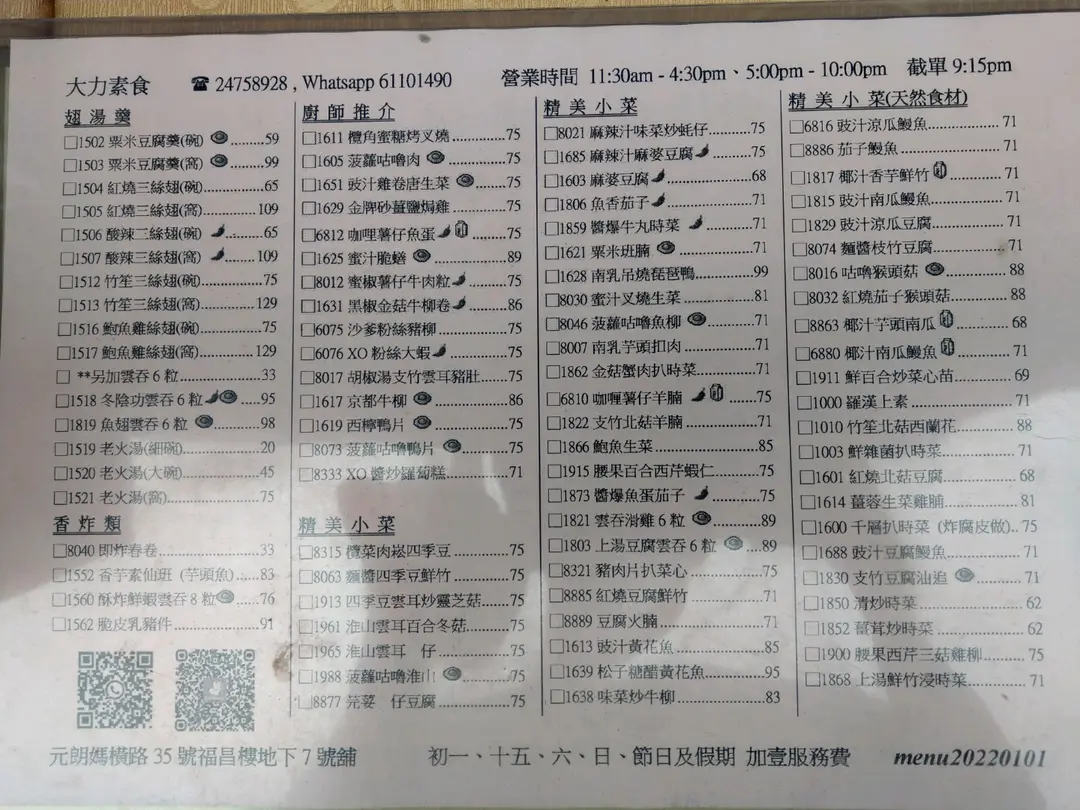 大力素食
☎ 24758928 , Whatsapp 61101490
營業時間 11:30am - 4:30pm、5:00pm - 10:00pm 截單 9:15pm
翅湯羹
1502 粟米豆腐羹(碗) 59
1503 粟米豆腐羹(窩) 99
1504 紅燒三絲翅(碗) 65
1505 紅燒三絲翅(窩) 109
1506 酸辣三絲翅(碗) 65
1507 酸辣三絲翅(窩) 109
1512 竹笙三絲翅(碗) 75
1513 竹笙三絲翅(窩) 129
1516 鮑魚雞絲翅(碗) 75
1517 鮑魚雞絲翅(窩) 129
**另加雲吞 6 粒 33
1518 冬陰功雲吞 6 粒 95
1819 魚翅雲吞 6 粒 98
1519 老火湯(細碗) 20
1520 老火湯(大碗) 45
1521 老火湯(窩) 75
香炸類
8040 即炸春卷 33
1552 香芋素仙班 (芋頭魚) 83
1560 酥炸鮮蝦雲吞 8 粒 76
1562 脆皮乳豬件 91
廚師推介
1611 欖角蜜糖烤叉燒 75
1605 菠蘿咕嚕肉 75
1651 豉汁雞卷唐生菜 75
1629 金牌砂薑鹽焗雞 75
6812 咖哩薯仔魚蛋 75
1625 蜜汁脆鱔 89
8012 蜜椒薯仔牛肉粒 75
1631 黑椒金菇牛柳卷 86
6075 沙爹粉絲豬柳 75
6076 XO 粉絲大蝦 75
8017 胡椒湯支竹雲耳豬肚 75
1617 京都牛柳 86
1619 西檸鴨片 75
8073 菠蘿咕嚕鴨片 75
8333 XO 醬炒羅蔔糕 71
精美小菜
8315 欖菜肉崧四季豆 75
8063 麵醬四季豆鮮竹 75
1913 四季豆雲耳炒靈芝菇 75
1961 淮山雲耳百合冬菇 75
1965 淮山雲耳 仔 75
1988 菠蘿咕嚕淮山 75
8877 芫荽 仔豆腐 75
精美小菜
8021 麻辣汁味菜炒蚝仔 75
1685 麻辣汁麻婆豆腐 75
1603 麻婆豆腐 68
1806 魚香茄子 71
1859 醬爆牛丸時菜 71
1621 粟米班腩 71
1628 南乳吊燒琵琶鴨 99
8030 蜜汁叉燒生菜 81
8046 菠蘿咕嚕魚柳 71
8007 南乳芋頭扣肉 71
1862 金菇蟹肉扒時菜 71
6810 咖喱薯仔羊腩 75
1822 支竹北菇羊腩 71
1866 鮑魚生菜 85
1915 腰果百合西芹蝦仁 75
1873 醬爆魚蛋茄子 75
1821 雲吞滑雞 6 粒 89
1803 上湯豆腐雲吞 6 粒 89
8321 豬肉片扒菜心 75
8885 紅燒豆腐鮮竹 71
8889 豆腐火腩 71
1613 豉汁黃花魚 85
1639 松子糖醋黃花魚 95
1638 味菜炒牛柳 83
精美小菜(天然食材)
6816 豉汁涼瓜鰻魚 71
8886 茄子鰻魚 71
1817 椰汁香芋鮮竹 71
1815 豉汁南瓜鰻魚 71
1829 豉汁涼瓜豆腐 71
8074 麵醬枝竹豆腐 71
8016 咕嚕猴頭菇 88
8032 紅燒茄子猴頭菇 88
8863 椰汁芋頭南瓜 68
6880 椰汁南瓜鰻魚 71
1911 鮮百合炒菜心苗 69
1000 羅漢上素 71
1010 竹笙北菇西蘭花 88
1003 鮮雜菌扒時菜 71
1601 紅燒北菇豆腐 68
1614 薑蓉生菜雞脯 81
1600 千層扒時菜 (炸腐皮做) 75
1688 豉汁豆腐鰻魚 71
1830 支竹豆腐汕追 71
1850 清炒時菜 62
1852 薑茸炒時菜 62
1900 腰果西芹三菇雞柳 75
1868 上湯鮮竹浸時菜 71
元朗媽橫路 35 號福昌樓地下 7 號舖
初一、十五、六、日、節日及假期 加壹服務費
menu20220101